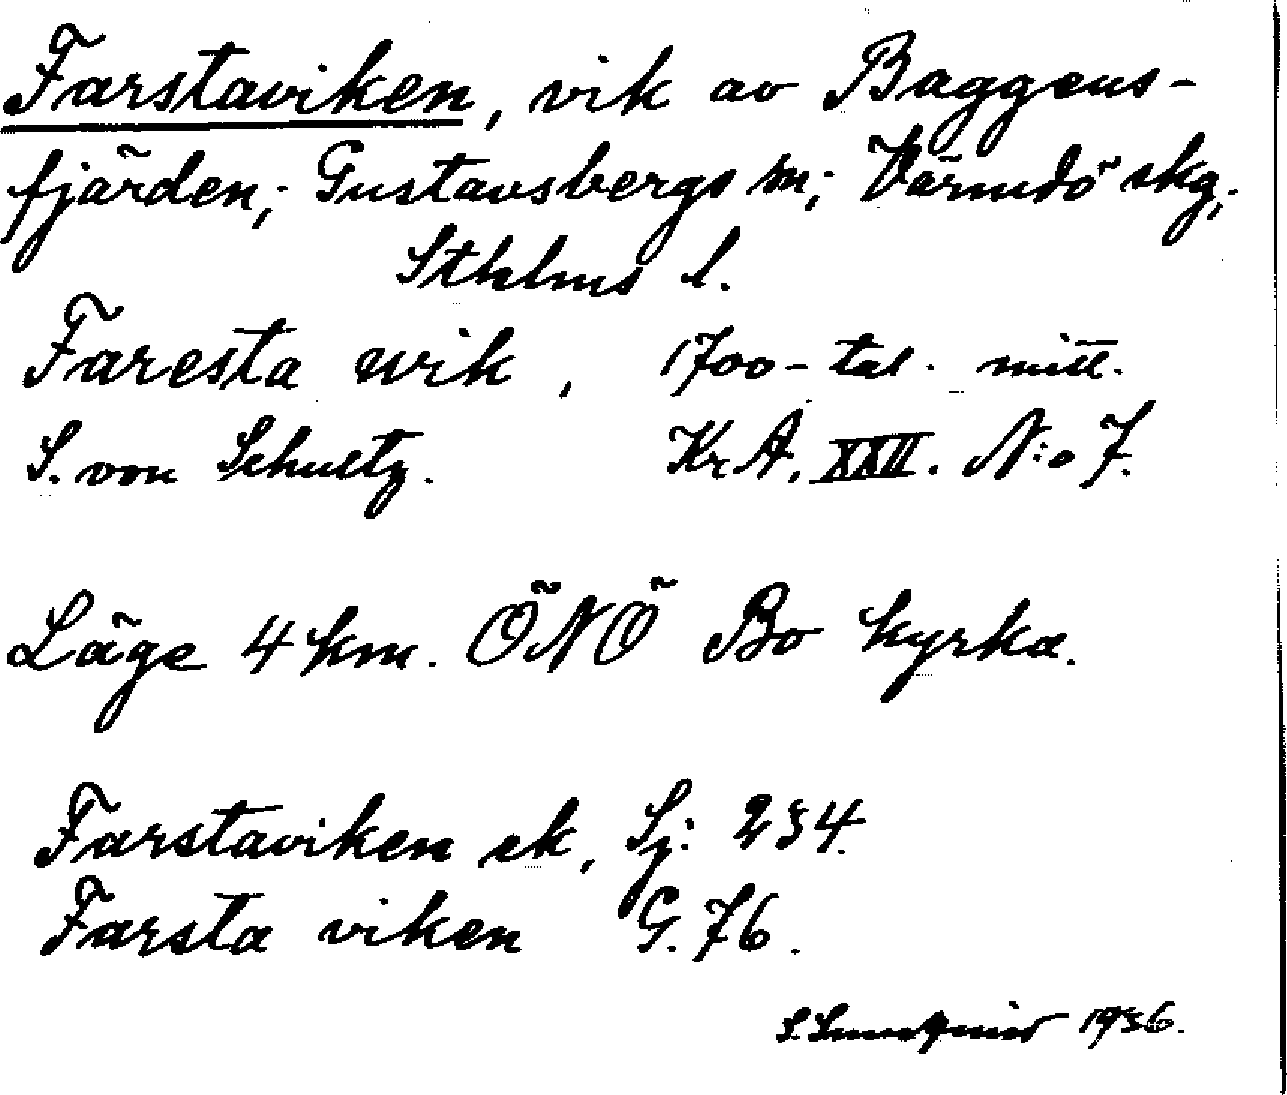 Farstaviken, vik av Baggens-
fjärden; Gustavsbergs sn; Värmdö skg,
Sthlms l.
Faresta wik, 1700-tal. mitt.
S. von Schultz. KrA. XXII. N:o 7.
Läge 4 km. ÖNÖ Bo kyrka.
Farstaviken ek, Sj: 234.
Farsta viken G. 76.
S. 1936.